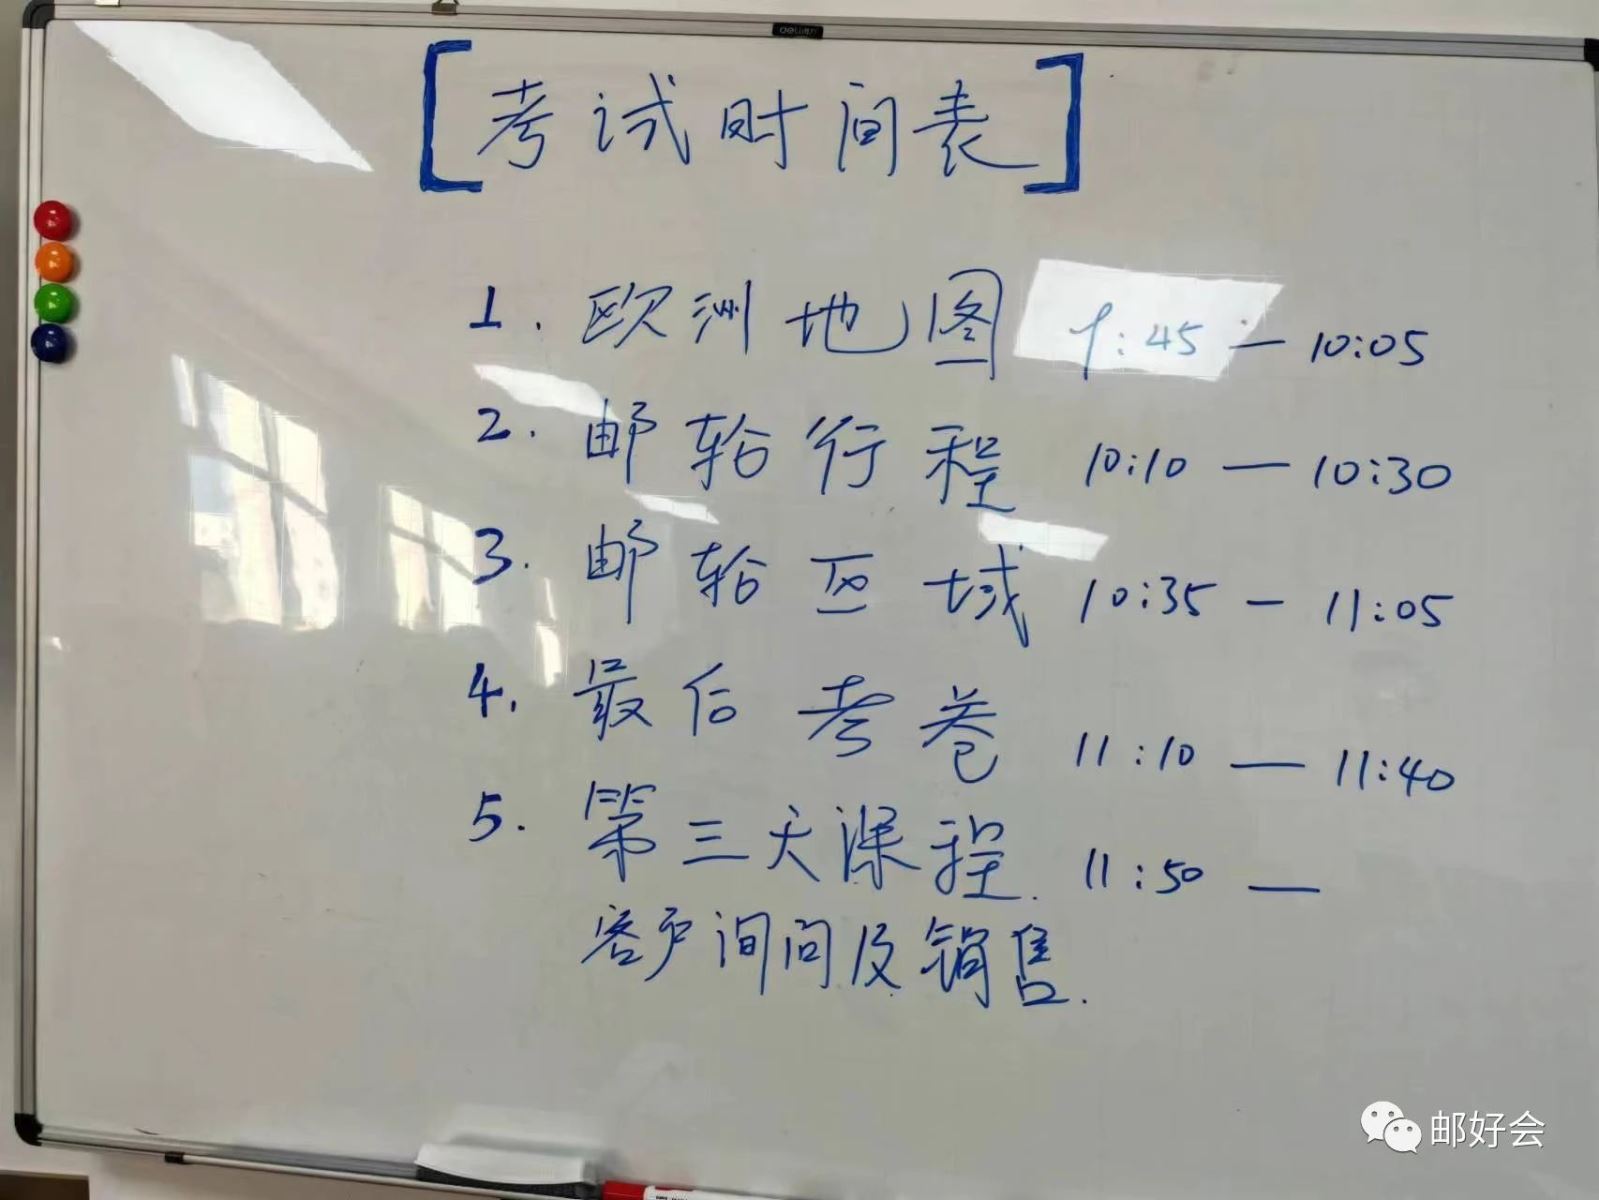 deli
[考试时间表]
1. 欧洲地图 9:45 — 10:05
2. 邮轮行程 10:10 — 10:30
3. 邮轮区域 10:35 — 11:05
4. 最后考卷 11:10 — 11:40
5. 第三天课程. 11:50 —
客户询问及销售.
邮好会